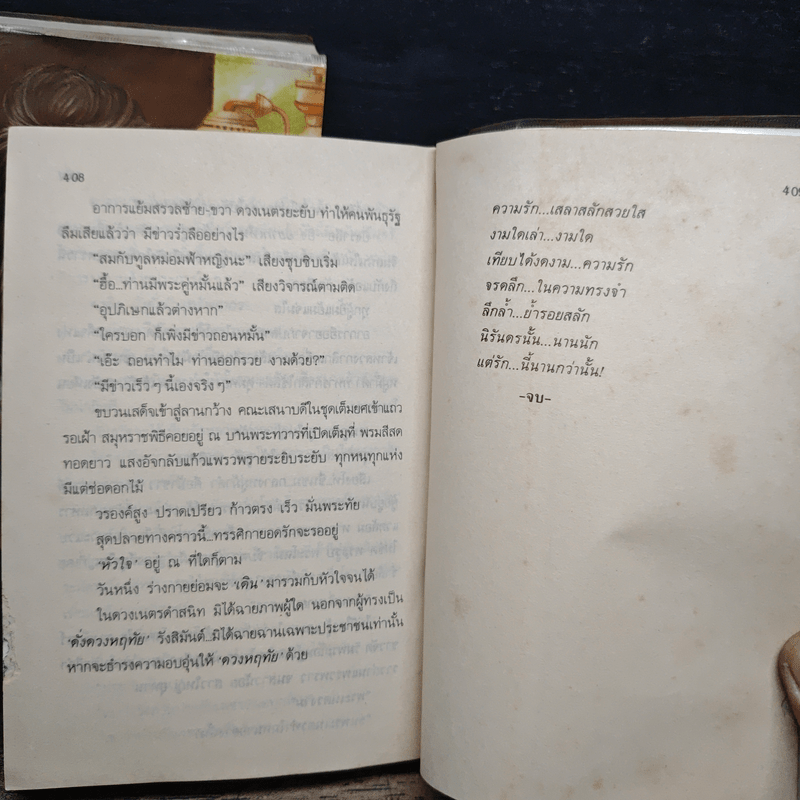 408
อาการแย้มสรวลซ้าย-ขวา ดวงเนตรยะยับ ทำให้คนพันธุรัฐ
ลืมเสียแล้วว่า มีข่าวร่ำลืออย่างไร
“สมกับทูลหม่อมฟ้าหญิงนะ” เสียงซุบซิบเริ่ม
“ฮื้อ...ท่านมีพระคู่หมั้นแล้ว” เสียงวิจารณ์ตามติด
“อุปภิเษกแล้วต่างหาก”
“ใครบอก ก็เพิ่งมีข่าวถอนหมั้น”
“เอ๊ะ ถอนทำไม ท่านออกรวย งามด้วย?”
“มีข่าวเร็ว ๆ นี้เองจริง ๆ”
ขบวนเสด็จเข้าสู่ลานกว้าง คณะเสนาบดีในชุดเต็มยศเข้าแถว
รอเฝ้า สมุหราชพิธีคอยอยู่ ณ บานพระทวารที่เปิดเต็มที่ พรมสีสด
ทอดยาว แสงอัจกลับแก้วแพรวพรายระยิบระยับ ทุกหนทุกแห่ง
มีแต่ช่อดอกไม้
วรองค์สูง ปราดเปรียว ก้าวตรง เร็ว มั่นพระทัย
สุดปลายทางคราวนี้...ทรรศิกายอดรักจะรออยู่
‘หัวใจ’ อยู่ ณ ที่ใดก็ตาม
วันหนึ่ง ร่างกายย่อมจะ ‘เดิน’ มารวมกับหัวใจจนได้
ในดวงเนตรดำสนิท มิได้ฉายภาพผู้ใด นอกจากผู้ทรงเป็น
‘ดั่งดวงหฤทัย’ รังสิมันต์...มิได้ฉายฉานเฉพาะประชาชนเท่านั้น
หากจะธำรงความอบอุ่นให้ ‘ดวงหฤทัย’ ด้วย
409
ความรัก...เสลาสลักสวยใส
งามใดเล่า...งามใด
เทียบได้งดงาม...ความรัก
จรดลึก...ในความทรงจำ
ลึกล้ำ...ย้ำรอยสลัก
นิรันดรนั้น...นานนัก
แต่รัก...นี้นานกว่านั้น!
-จบ-